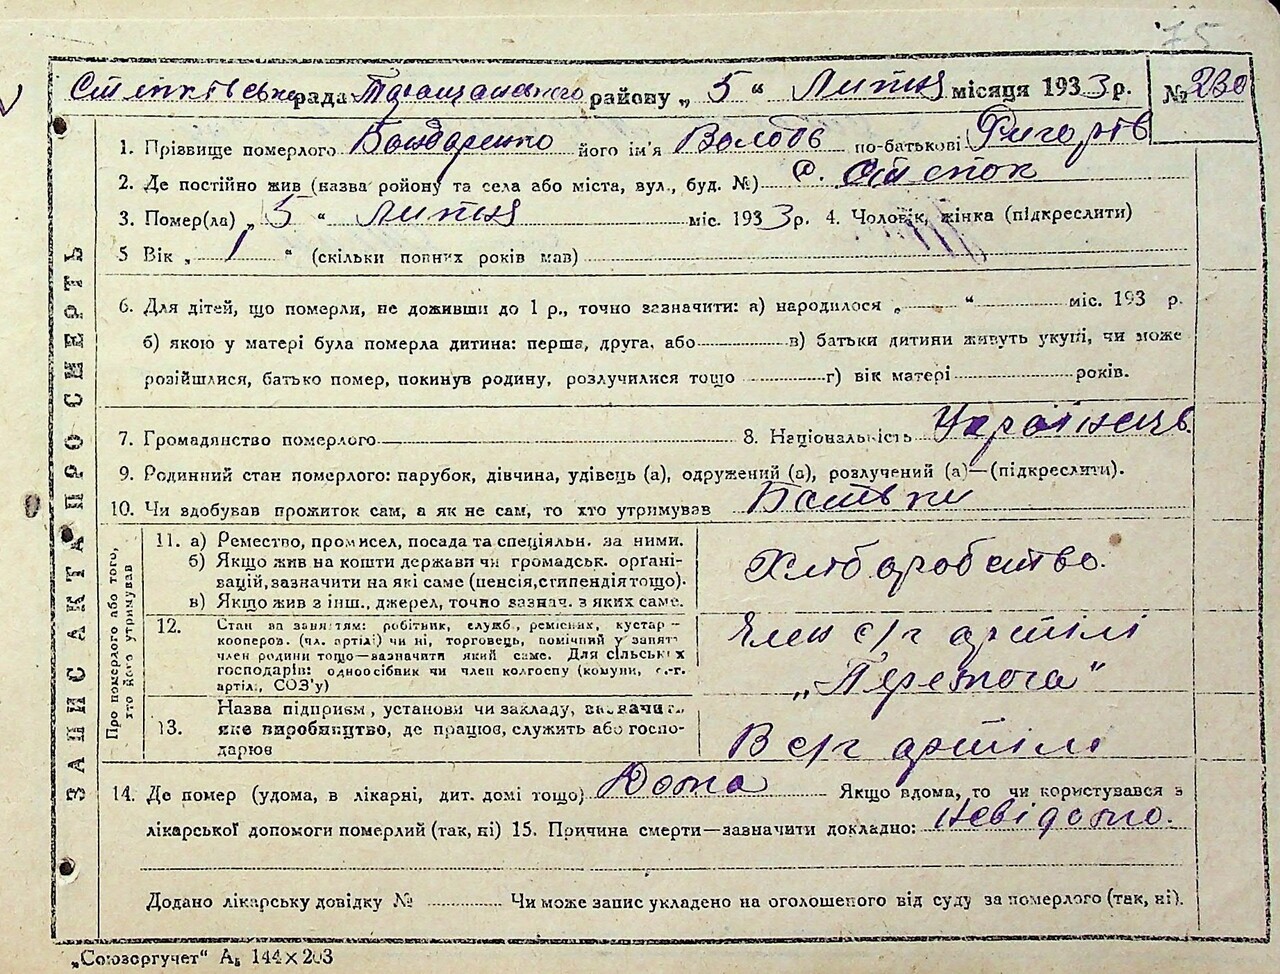 75
рада Таращанського району „ 5 “ Липня місяця 1933 р. № 230
1. Прізвище померлого Бондаренко його ім'я Володь по-батькові Григорів
2. Де постійно жив (назва ройону та села або міста, вул., буд. №) с. Степок
3. Помер(ла) „ 5 “ Липня міс. 1933 р. 4. Чоловік, жінка (підкреслити)
5 Вік „ 1 “ (скільки повних років мав)
6. Для дітей, що померли, не доживши до 1 р., точно зазначити: а) народилося „ “ міс. 193 р.
б) якою у матері була померла дитина: перша, друга, або в) батьки дитини живуть укупі, чи може
розійшлися, батько помер, покинув родину, розлучилися тощо г) вік матері років.
7. Громадянство померлого 8. Національність Українець
9. Родинний стан померлого: парубок, дівчина, удівець (а), одружений (а), розлучений (а)—(підкреслити).
10. Чи здобував прожиток сам, а як не сам, то хто утримував Батьки
ЗАПИС АКТА ПРО СМЕРТЬ
Про померлого або того,
хто його утримував
11. а) Ремество, промисел, посада та спеціяльн. за ними.
б) Якщо жив на кошти держави чи громадськ. орґані-
вацій, зазначити на які саме (пенсія, стипендія тощо).
в) Якщо жив з інш., джерел, точно зазнач. з яких саме.
Хліборобство.
12. Стан за заняттям: робітник, служб, ремісник, кустар—
кооперов. (чл. артілі) чи ні, торговець, помічний у занят
член родини тощо—зазначити який саме. Для сільських
господарів: одноосібник чи член колгоспу (комуни, с.-г.
артілі, СОЗ'у)
Член с/г артілі
„Перемога“
13. Назва підприєм, установи чи закладу, зазначит.
яке виробництво, де працює, служить або госпо-
дарює
В с/г артілі
14. Де помер (удома, в лікарні, дит. домі тощо) Дома Якщо вдома, то чи користувався з
лікарської допомоги померлий (так, ні) 15. Причина смерти—зазначити докладно: невідомо.
Додано лікарську довідку № Чи може запис укладено на оголошеного від суду за померлого (так, ні).
„Союзоргучет“ А₅ 144×203